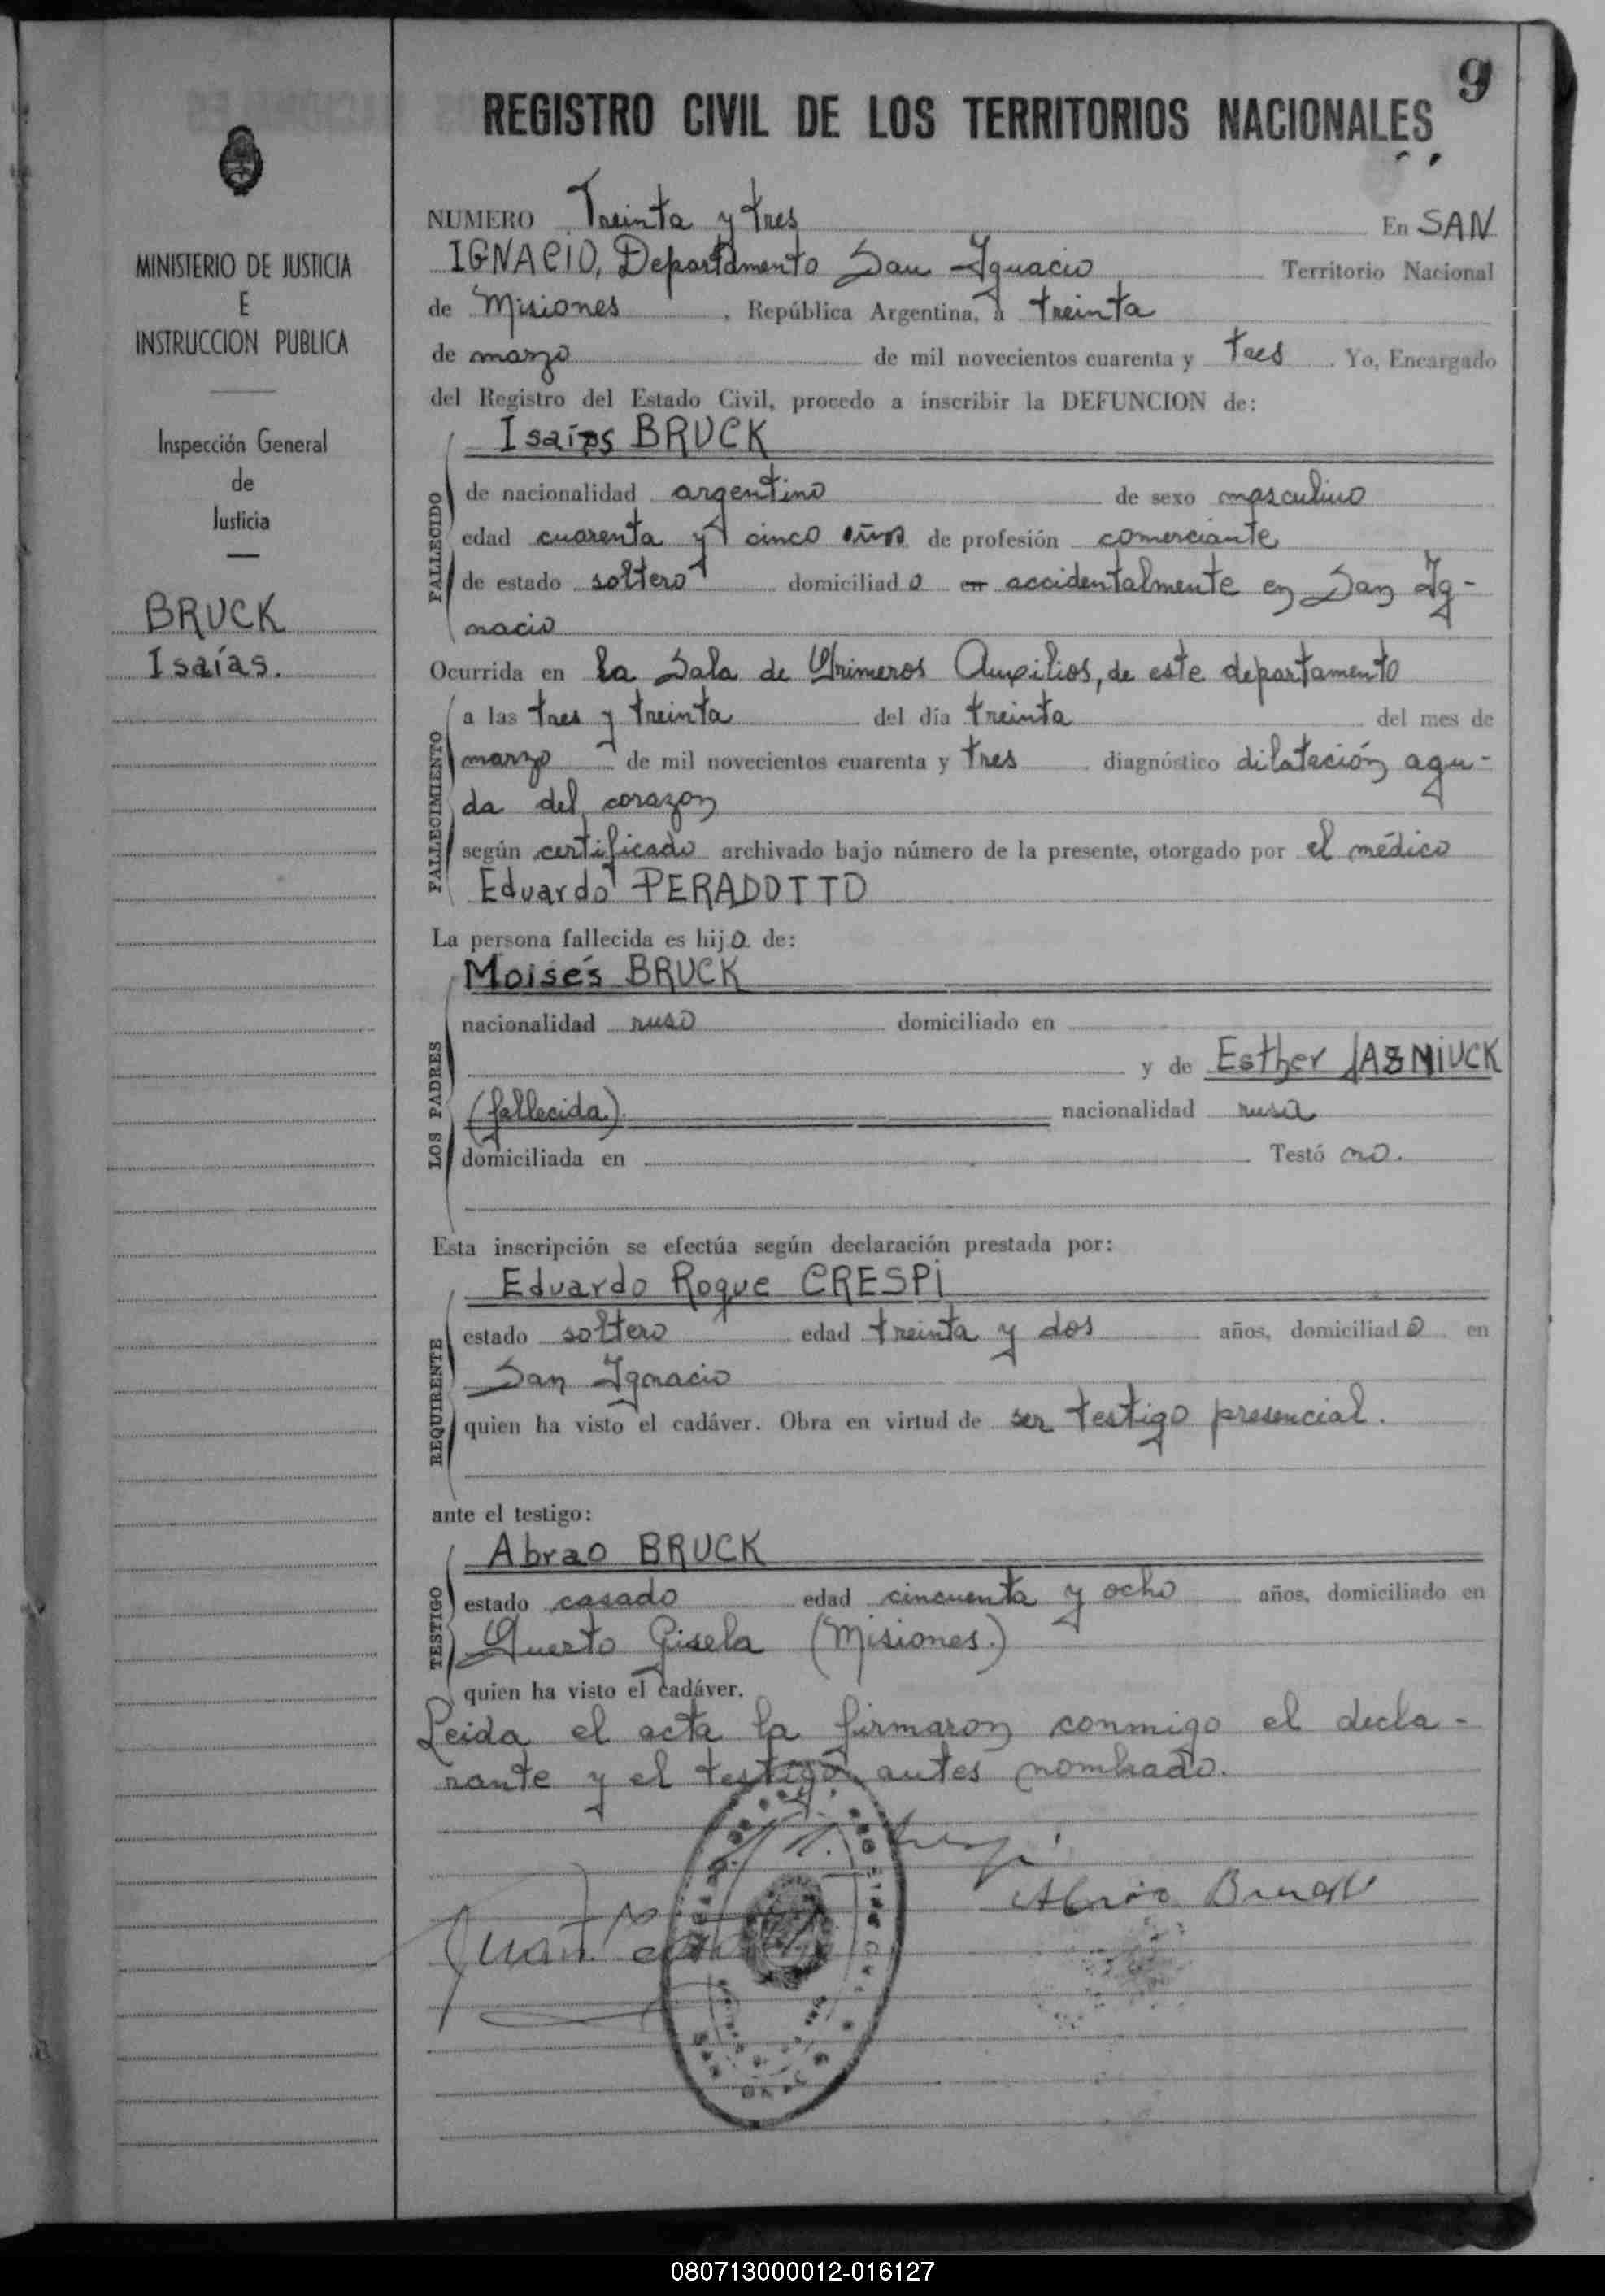 9
REGISTRO CIVIL DE LOS TERRITORIOS NACIONALES
MINISTERIO DE JUSTICIA
E
INSTRUCCION PUBLICA
Inspección General
de
Justicia
BRUCK
Isaías.
NUMERO Treinta y tres En SAN
IGNACIO, Departamento San Ignacio Territorio Nacional
de Misiones, República Argentina, a treinta
de marzo de mil novecientos cuarenta y tres. Yo, Encargado
del Registro del Estado Civil, procedo a inscribir la DEFUNCION de:
Isaías BRUCK
FALLECIDO
de nacionalidad argentino de sexo masculino
edad cuarenta y cinco años de profesión comerciante
de estado soltero domiciliado en accidentalmente en San Ig-
nacio
Ocurrida en la Sala de Primeros Auxilios, de este departamento
FALLECIMIENTO
a las tres y treinta del día treinta del mes de
marzo de mil novecientos cuarenta y tres. diagnóstico dilatación agu-
da del corazon
según certificado archivado bajo número de la presente, otorgado por el médico
Eduardo PERADOTTO
La persona fallecida es hijo de:
LOS PADRES
Moisés BRUCK
nacionalidad ruso domiciliado en
y de Esther JAZNIUCK
(fallecida) nacionalidad rusa
domiciliada en Testó no.
Esta inscripción se efectúa según declaración prestada por:
REQUIRENTE
Eduardo Roque CRESPI
estado soltero edad treinta y dos años, domiciliado en
San Ignacio
quien ha visto el cadáver. Obra en virtud de ser testigo presencial.
ante el testigo:
TESTIGO
Abrao BRUCK
estado casado edad cincuenta y ocho años, domiciliado en
Puerto Gisela (Misiones.)
quien ha visto el cadáver.
Leida el acta la firmaron conmigo el decla-
rante y el testigo antes nombrado.
Abrão Bruck
Juan
080713000012-016127